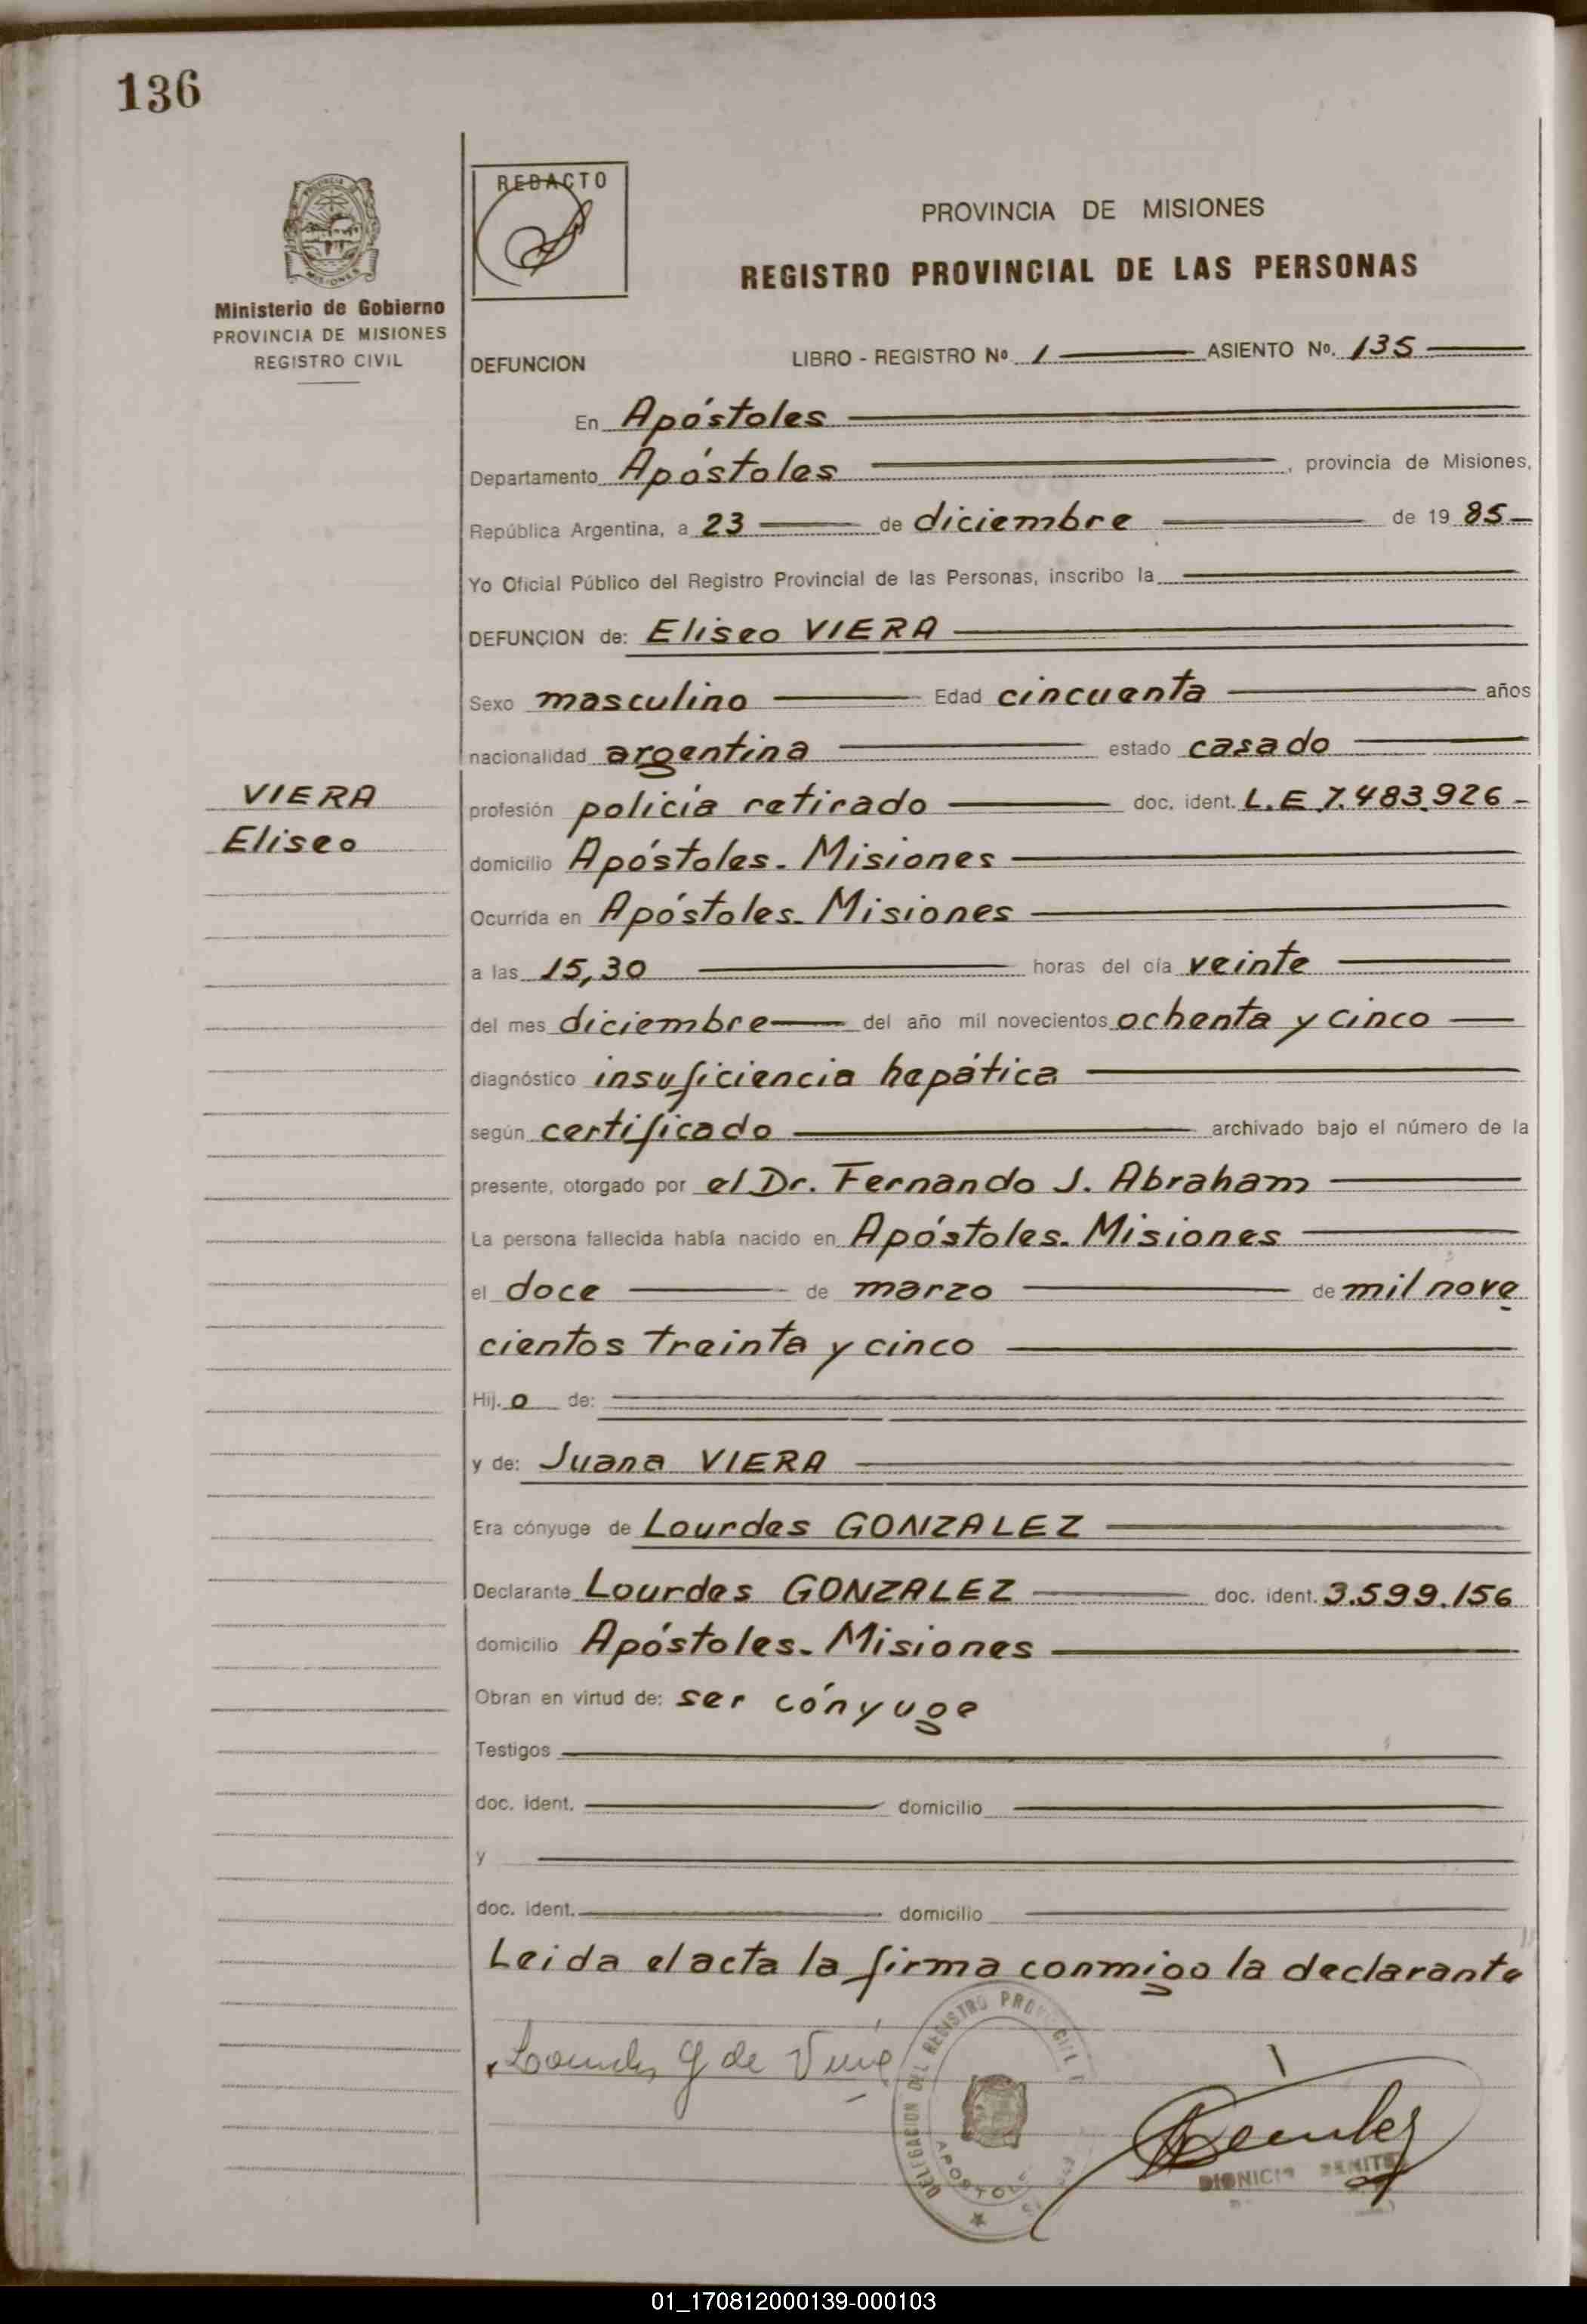 136
REDACTO
PROVINCIA DE MISIONES
REGISTRO PROVINCIAL DE LAS PERSONAS
Ministerio de Gobierno
PROVINCIA DE MISIONES
REGISTRO CIVIL
DEFUNCION LIBRO - REGISTRO Nº 1 ASIENTO Nº. 135
En Apóstoles
Departamento Apóstoles, provincia de Misiones,
República Argentina, a 23 de diciembre de 19 85
Yo Oficial Público del Registro Provincial de las Personas, inscribo la
DEFUNCION de: Eliseo VIERA
Sexo masculino Edad cincuenta años
nacionalidad argentina estado casado
VIERA
Eliseo
profesión policía retirado doc. ident. L.E 7.483.926
domicilio Apóstoles. Misiones
Ocurrida en Apóstoles. Misiones
a las 15,30 horas del día veinte
del mes diciembre del año mil novecientos ochenta y cinco
diagnóstico insuficiencia hepática
según certificado archivado bajo el número de la
presente, otorgado por el Dr. Fernando J. Abraham
La persona fallecida había nacido en Apóstoles. Misiones
el doce de marzo de mil nove
cientos treinta y cinco
Hij. o de:
y de: Juana VIERA
Era cónyuge de Lourdes GONZALEZ
Declarante Lourdes GONZALEZ doc. ident. 3.599.156
domicilio Apóstoles. Misiones
Obran en virtud de: ser cónyuge
Testigos
doc. ident. domicilio
y
doc. ident. domicilio
Leida el acta la firma conmigo la declarante
Lourdes G de
DELEGACION DEL REGISTRO
DIONICIO BENITEZ
01_170812000139-000103